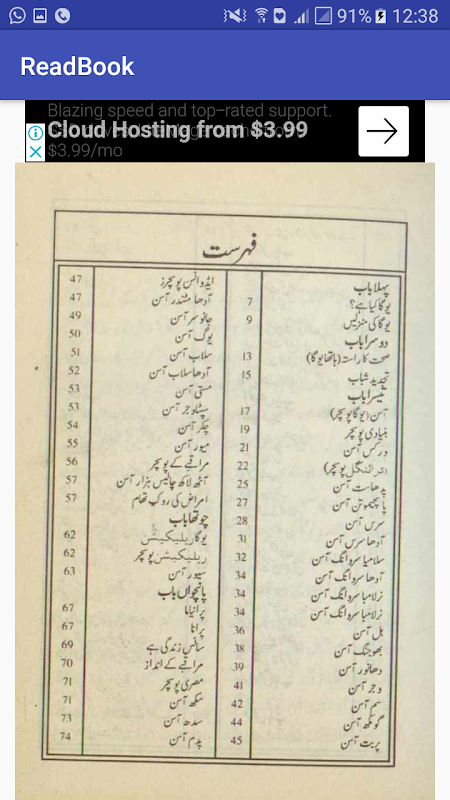 91% 12:38
ReadBook
Blazing speed and top-rated support.
Cloud Hosting from $3.99
$3.99/mo
فہرست
پہلا باب
یوگا کیا ہے؟ 7
یوگا کی منزلیں 9
دوسرا باب
صحت کا راستہ (ہاتھا یوگا) 13
تجدید شباب 15
تیسرا باب
آسن (یوگا پوسچر) 17
بنیادی پوسچر 19
ورکس آسن 21
پوسچر) 22
پدھاست آسن 25
پاچیموتن آسن 27
سرس آسن 28
آدھا سرس آسن 31
سلامبا سروانگ آسن 32
آدھا سروانگ آسن 34
نرلامبا سروانگ آسن 34
نرلامبا سروانگ آسن 34
ہل آسن 36
بھوجنگ آسن 38
دھانور آسن 39
وجر آسن 41
سم آسن 42
گومکھ آسن 44
پربت آسن 45
ایڈوانس پوسچرز 47
آدھا مشندر آسن 47
جانوسر آسن 49
یوگ آسن 50
سلاب آسن 51
آدھا سلاب آسن 52
متسی آسن 53
سپتاوجر آسن 53
چکر آسن 54
میور آسن 55
مراقبے کے پوسچر 56
آٹھ لاکھ چالیس ہزار آسن 57
امراض کی روک تھام 57
چوتھا باب
یوگا ریلیکسیشن 62
ریلیکسیشن پوسچر 62
سیور آسن 63
پانچواں باب
پرانایا 67
پرانا 67
سانس زندگی ہے 69
مراقبے کے انداز 70
مصری پوسچر 71
سکھ آسن 71
سدھ آسن 73
پدم آسن 74